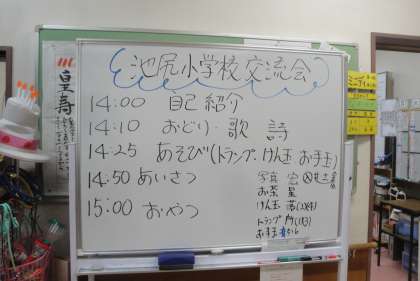 池尻小学校交流会
14:00 自己紹介
14:10 おどり・歌 詩
14:25 あそび(トランプ、けん玉 お手玉)
14:50 あいさつ
15:00 おやつ
写真
お茶
けん玉
トランプ
お手玉
皇寿